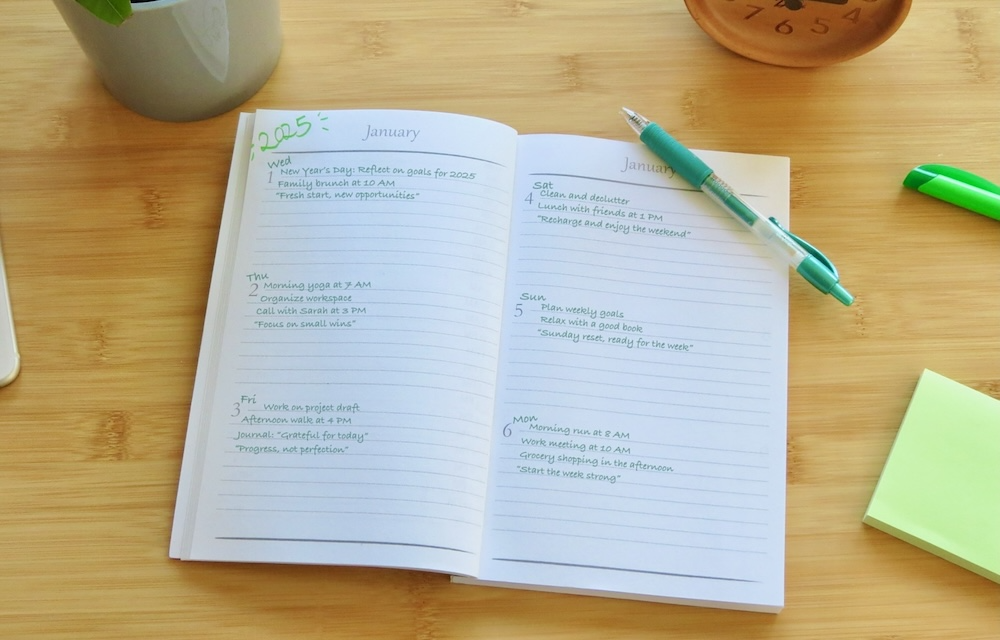 2025
January
Wed
1 New Year's Day: Reflect on goals for 2025
Family brunch at 10 AM
"Fresh start, new opportunities"
Thu
2 Morning yoga at 7 AM
Organize workspace
Call with Sarah at 3 PM
"Focus on small wins"
Fri
3 Work on project draft
Afternoon walk at 4 PM
Journal: "Grateful for today"
"Progress, not perfection"
January
Sat
4 Clean and declutter
Lunch with friends at 1 PM
"Recharge and enjoy the weekend"
Sun
5 Plan weekly goals
Relax with a good book
"Sunday reset, ready for the week"
Mon
6 Morning run at 8 AM
Work meeting at 10 AM
Grocery shopping in the afternoon
"Start the week strong"
7 6 5 4